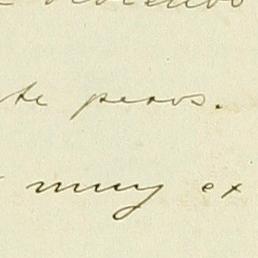 te pesos.
muy ex